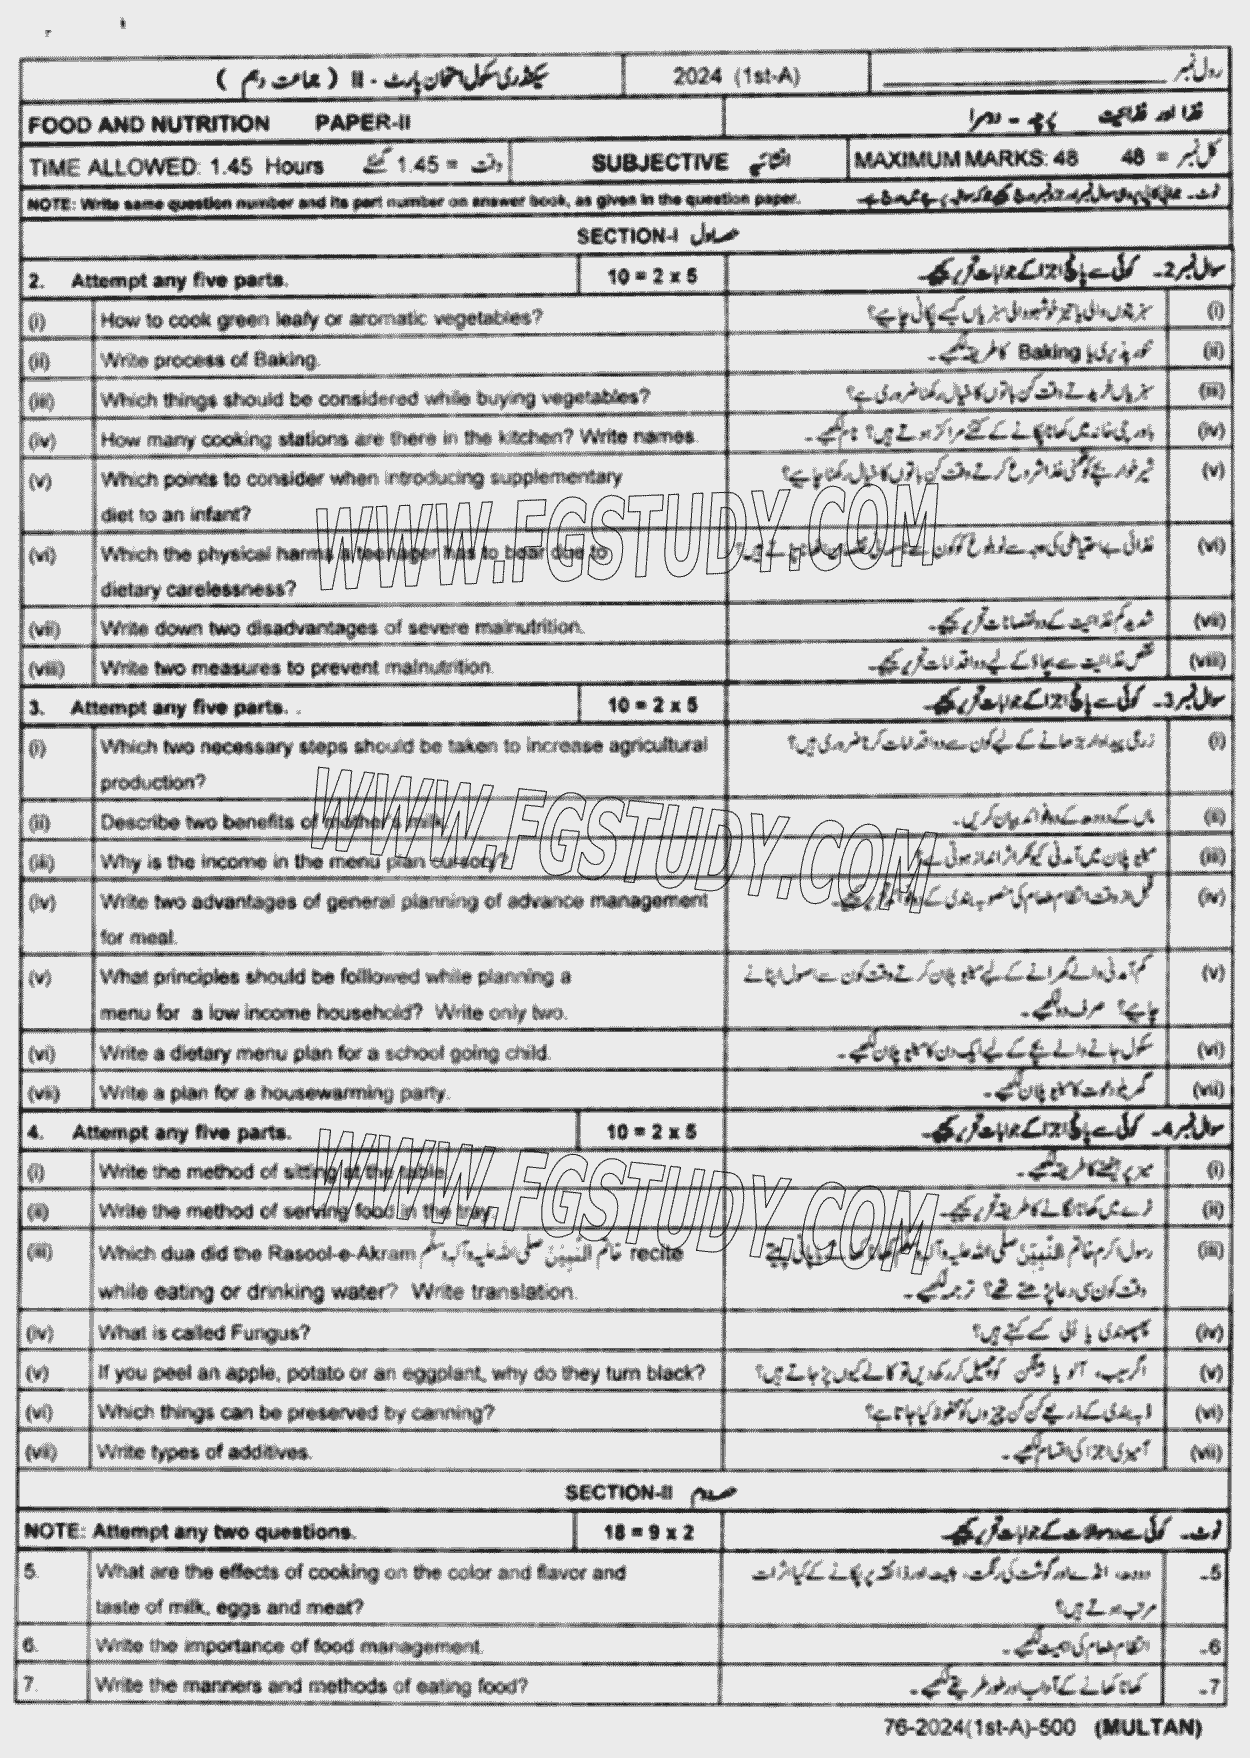 سیکنڈری سکول امتحان پارٹ - II ( جماعت دہم ) 2024 (1st-A) رول نمبر
FOOD AND NUTRITION PAPER-II غذا اور غذائیت پرچہ - دوسرا
TIME ALLOWED: 1.45 Hours وقت = 1.45 گھنٹے SUBJECTIVE انشائیہ MAXIMUM MARKS: 48 کل نمبر = 48
NOTE: Write same question number and its part number on answer book, as given in the question paper.
SECTION-I حصہ اول
2. Attempt any five parts. 10 = 2 x 5 سوال نمبر 2۔ کوئی سے پانچ اجزا کے جوابات تحریر کیجیے۔
(i) How to cook green leafy or aromatic vegetables? سبز پتوں والی یا تیز خوشبو والی سبزیاں کیسے پکانی چاہیے؟ (i)
(ii) Write process of Baking. تنور پذیری یا Baking کا طریقہ لکھیے۔ (ii)
(iii) Which things should be considered while buying vegetables? سبزیاں خریدتے وقت کن باتوں کا خیال رکھنا ضروری ہے؟ (iii)
(iv) How many cooking stations are there in the kitchen? Write names. باورچی خانہ میں کھانا پکانے کے کتنے مراکز ہوتے ہیں؟ نام لکھیے۔ (iv)
(v) Which points to consider when introducing supplementary شیر خوار بچے کو ٹھوس غذا شروع کرتے وقت کن باتوں کا خیال رکھنا چاہیے؟ (v)
diet to an infant?
(vi) Which the physical harms a teenager has to bear due to غذائی بے احتیاطی کی وجہ سے نوبلوغ کو کون سے جسمانی نقصان اٹھانا پڑتے ہیں؟ (vi)
dietary carelessness?
(vii) Write down two disadvantages of severe malnutrition. شدید کم غذائیت کے دو نقصانات تحریر کیجیے۔ (vii)
(viii) Write two measures to prevent malnutrition. نقص غذائیت سے بچاؤ کے لیے دو اقدامات تحریر کیجیے۔ (viii)
3. Attempt any five parts. . 10 = 2 x 5 سوال نمبر 3۔ کوئی سے پانچ اجزا کے جوابات تحریر کیجیے۔
(i) Which two necessary steps should be taken to increase agricultural زرعی پیداوار بڑھانے کے لیے کون سے دو اقدامات کرنا ضروری ہیں؟ (i)
production?
(ii) Describe two benefits of mother's milk. ماں کے دودھ کے دو فوائد بیان کریں۔ (ii)
(iii) Why is the income in the menu plan cursory? مینیو پلان میں آمدنی کیونکر اثر انداز ہوتی ہے؟ (iii)
(iv) Write two advantages of general planning of advance management قبل از وقت انتظام طعام کی منصوبہ بندی کے دو فوائد تحریر کیجیے۔ (iv)
for meal.
(v) What principles should be folllowed while planning a کم آمدنی والے گھرانے کے لیے مینیو پلان کرتے وقت کون سے اصول اپنانے (v)
menu for a low income household? Write only two. چاہیے؟ صرف دو لکھیے۔
(vi) Write a dietary menu plan for a school going child. سکول جانے والے بچے کے لیے ایک دن کا مینیو پلان لکھیے۔ (vi)
(vii) Write a plan for a housewarming party. گھریلو دعوت کا مینیو پلان لکھیے۔ (vii)
4. Attempt any five parts. 10 = 2 x 5 سوال نمبر 4۔ کوئی سے پانچ اجزا کے جوابات تحریر کیجیے۔
(i) Write the method of sitting at the table. میز پر بیٹھنے کا طریقہ لکھیے۔ (i)
(ii) Write the method of serving food in the tray. ٹرے میں کھانا لگانے کا طریقہ تحریر کیجیے۔ (ii)
(iii) Which dua did the Rasool-e-Akram خاتم النبیین صلی اللہ علیہ وآلہ وسلم recite رسول اکرم خاتم النبیین صلی اللہ علیہ وآلہ وسلم کھانا کھاتے یا پانی پیتے (iii)
while eating or drinking water? Write translation. وقت کون سی دعا پڑھتے تھے؟ ترجمہ لکھیے۔
(iv) What is called Fungus? پھپھوندی یا اُلی کسے کہتے ہیں؟ (iv)
(v) If you peel an apple, potato or an eggplant, why do they turn black? اگر سیب، آلو یا بینگن کو چھیل کر رکھ دیں تو کالے کیوں پڑ جاتے ہیں؟ (v)
(vi) Which things can be preserved by canning? ڈبہ بندی کے ذریعے کن کن چیزوں کو محفوظ کیا جاتا ہے؟ (vi)
(vii) Write types of additives. آمیزی اجزا کی اقسام لکھیے۔ (vii)
SECTION-II حصہ دوم
NOTE: Attempt any two questions. 18 = 9 x 2 نوٹ۔ کوئی سے دو سوالات کے جوابات تحریر کیجیے۔
5. What are the effects of cooking on the color and flavor and دودھ، انڈے اور گوشت کی رنگت، ہیئت اور ذائقہ پر پکانے کے کیا اثرات 5۔
taste of milk, eggs and meat? مرتب ہوتے ہیں؟
6. Write the importance of food management. انتظام طعام کی اہمیت لکھیے۔ 6۔
7. Write the manners and methods of eating food? کھانا کھانے کے آداب اور طور طریقے لکھیے۔ 7۔
76-2024(1st-A)-500 (MULTAN)
WWW.FGSTUDY.COM
WWW.FGSTUDY.COM
WWW.FGSTUDY.COM